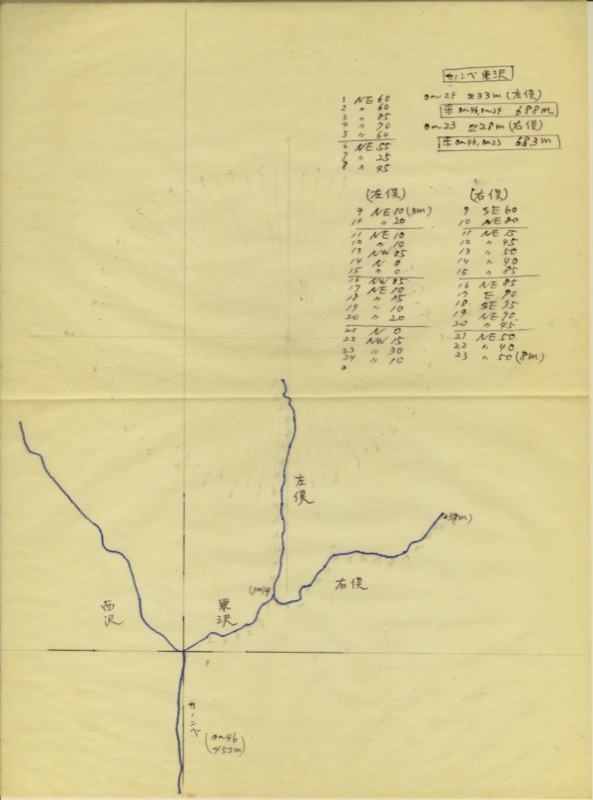 カンベ東沢
0~24 ≅33m(左俣)
0~46,0~24 688m
0~23 ≅28m(右俣)
0~46,0~23 683m
1 NE 60
2 〃 60
3 〃 85
4 〃 70
5 〃 60
6 NE 55
7 〃 25
8 〃 45
(左俣)
9 NE 10(3m)
10 〃 20
11 NE 10
12 〃 10
13 NW 05
14 N 0
15 〃 0
16 NW 05
17 NE 10
18 〃 15
19 〃 10
20 〃 20
21 N 0
22 NW 15
23 〃 30
24 〃 10
(右俣)
9 SE 60
10 NE 80
11 NE 15
12 〃 45
13 〃 50
14 〃 40
15 〃 85
16 NE 85
17 E 90
18 SE 75
19 NE 70
20 〃 45
21 NE 50
22 〃 40
23 〃 50(8m)
左俣
23(8m)
右俣
東沢
西沢
(0~46
455m)